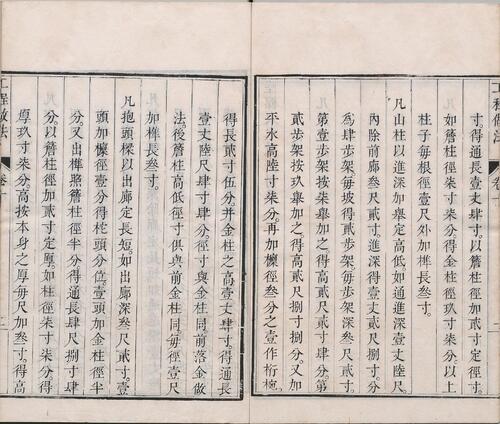 工程做法
卷十
寸得通長貳寸以簷柱徑加貳寸定徑寸
如簷柱徑柒寸柒分得金柱徑玖寸柒分以上
柱子每根徑壹尺外加榫長叁寸
凡山柱以進深加舉定高低如通進深壹丈陸尺
內除前廊叁尺貳寸進深得壹丈貳尺捌寸分
為肆步架每坡得貳步架每步架深叁尺貳寸
第壹步架按柒舉加之得高貳尺貳寸肆分第
貳步架按玖舉加之得高貳尺捌寸捌分又加
平水高陸寸柒分再加檁徑叁分之壹作桁椀
得長貳寸伍分并金柱之高壹丈肆寸得通長
壹丈陸尺肆寸肆分徑寸與金柱同前落金做
法後簷柱高低徑寸俱與前金柱同每徑壹尺
加榫長叁寸
凡抱頭樑以出廊定長短如出廊深叁尺貳寸壹
頭加檁徑壹分得柁頭分位壹頭加金柱徑半
分又出榫照簷柱徑半分得通長肆尺捌寸肆
分以簷柱徑加貳寸定厚如柱徑柒寸柒分得
厚玖寸柒分高按本身之厚每尺加叁寸得高
工程做法
卷十